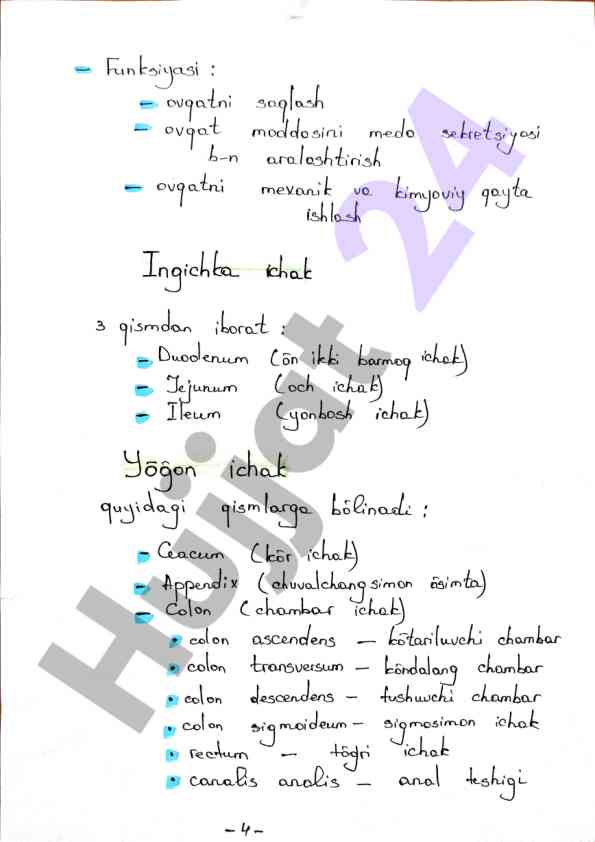 – Funksiyasi :
– ovqatni saqlash
– ovqat moddasini meda sekretsiyasi
b-n aralashtirish
– ovqatni mexanik va kimyoviy qayta
ishlash
Ingichka ichak
3 qismdan iborat :
– Duodenum (ōn ikki barmoq ichak)
– Jejunum (och ichak)
– Ileum (yonbosh ichak)
Yōḡon ichak
quyidagi qismlarga bōlinadi :
– Ceacum (kōr ichak)
– Appendix (chuvalchangsimon ōsimta)
– Colon (chambar ichak)
• colon ascendens – kōtariluvchi chambar
• colon transversum – kōndalang chambar
• colon descendens – tushuvchi chambar
• colon sigmoideum – sigmasimon ichak
• rectum – tōḡri ichak
• canalis analis – anal teshigi
- 4 -
Hujjat 24